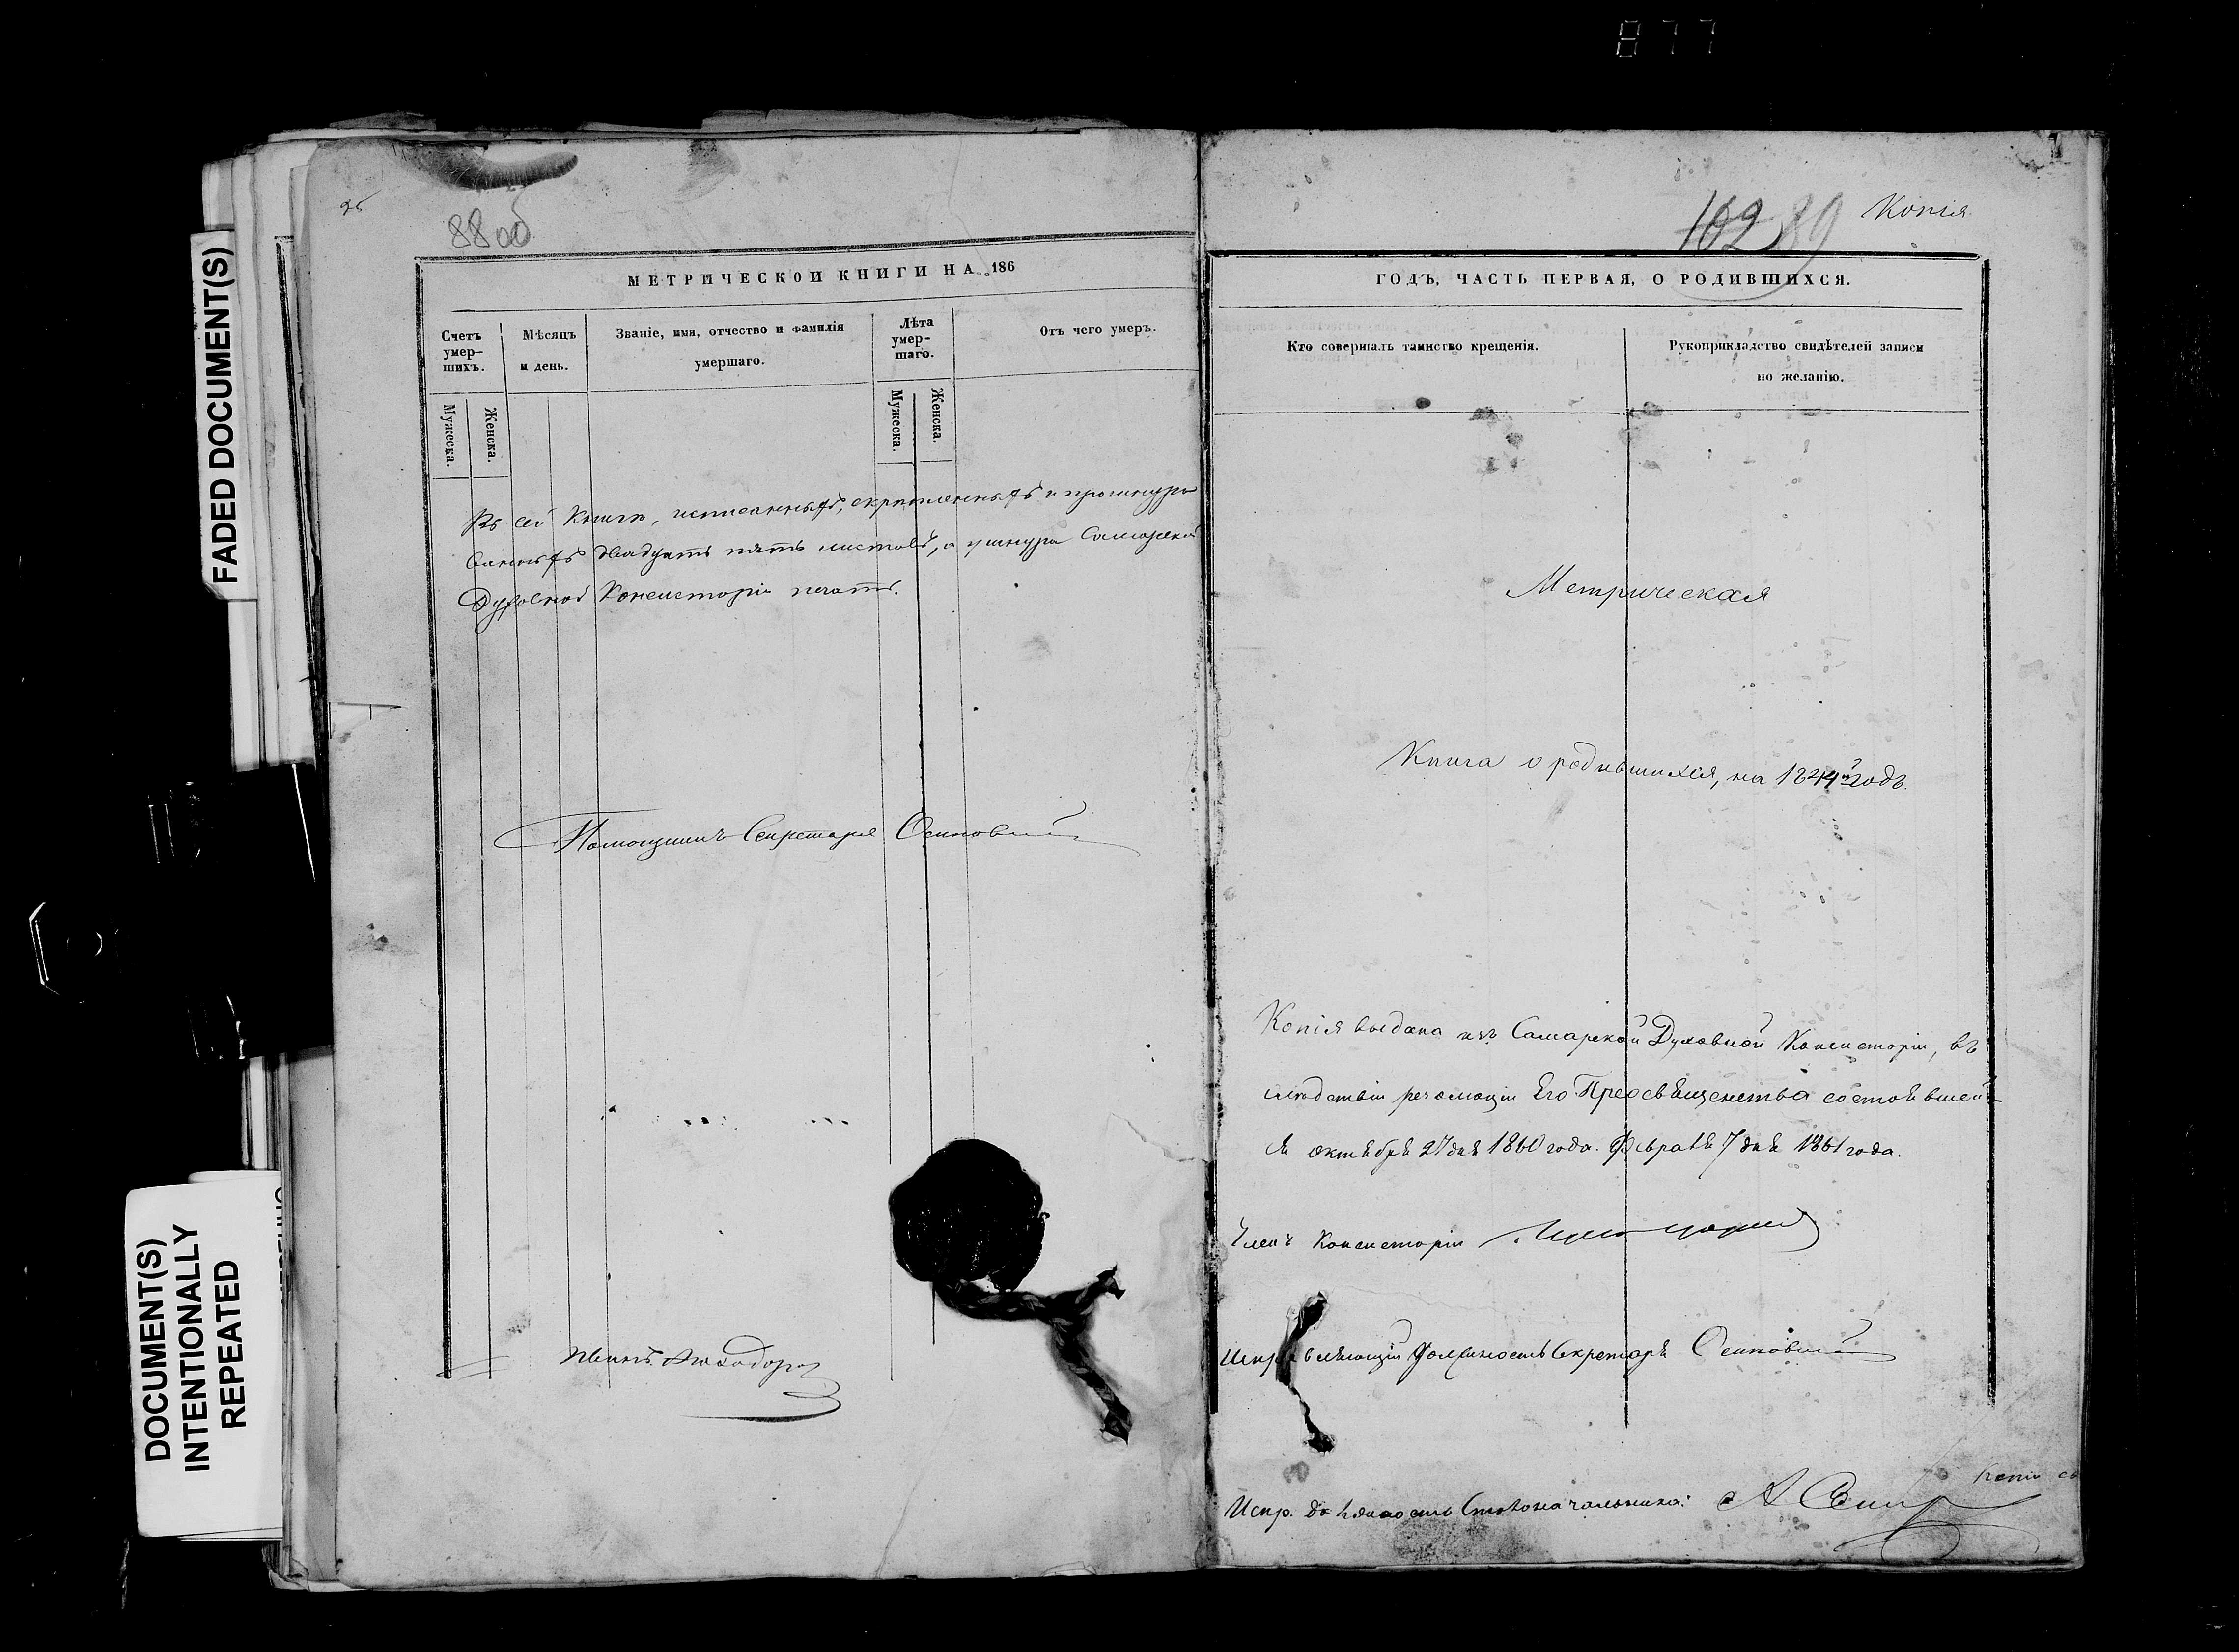 877
FADED DOCUMENT(S)
DOCUMENT(S)
INTENTIONALLY
REPEATED
25
88 об
МЕТРИЧЕСКОЙ КНИГИ НА 186
Счетъ
умер-
шихъ.
Мѣсяцъ
и день.
Званіе, имя, отчество и фамилія
умершаго.
Лѣта
умер-
шаго.
Отъ чего умеръ.
Мужеска.
Женска.
Мужеска.
Женска.
Въ сей книгѣ, исписанныхъ, скрѣпленныхъ и прошнуро
ванныхъ двадцать пять листовъ, а у шнура Самарской
Духовной Консисторіи печать.
Помощникъ Секретаря Осиновскій
Иванъ
102 89 Копія
ГОДЪ, ЧАСТЬ ПЕРВАЯ, О РОДИВШИХСЯ.
Кто совершалъ таинство крещенія.
Рукоприкладство свидѣтелей записи
по желанію.
Метрическая
Книга о родившихся, на 1844й годъ.
Копія выдана изъ Самарской Духовной Консисторіи, въ
слѣдствіи резолюціи Его Преосвященства состоявшей
ся октября 27 дня 1860 года. Февраля 7 дня 1861 года.
Членъ Консисторіи
Исправляющій должность Секретаря Осиновскій
Испр. должность Столоначальника:
Копія съ